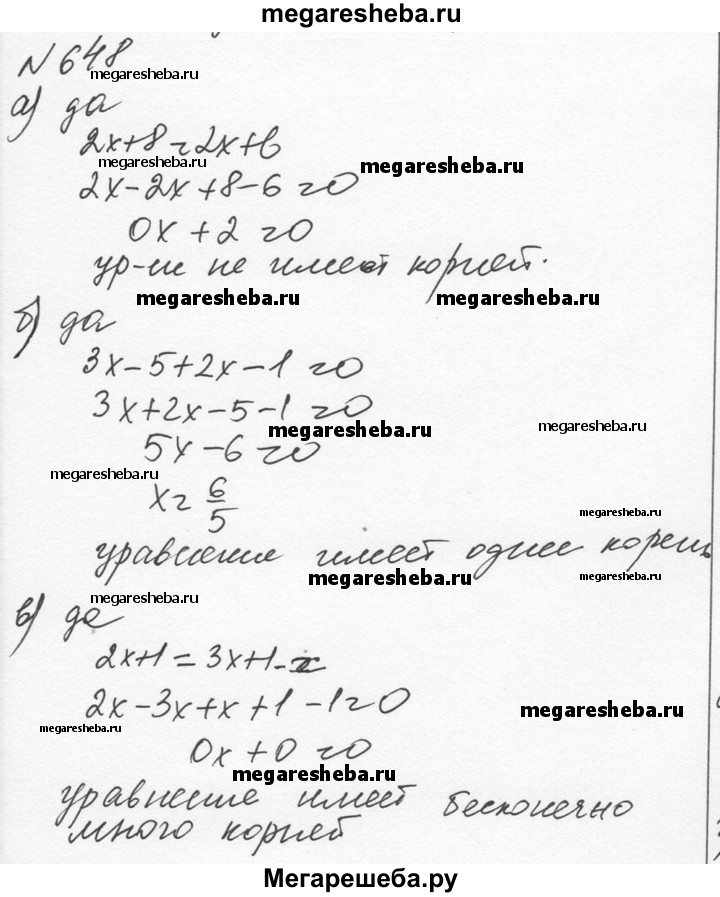 megaresheba.ru
N 648
megaresheba.ru
а) да
2x+8=2x+6
megaresheba.ru
megaresheba.ru
2x-2x+8-6=0
0x+2=0
ур-ие не имеет корней.
megaresheba.ru
megaresheba.ru
б) да
3x-5+2x-1=0
3x+2x-5-1=0
megaresheba.ru
megaresheba.ru
5x-6=0
megaresheba.ru
x=6/5
megaresheba.ru
уравнение имеет один корень
megaresheba.ru
megaresheba.ru
megaresheba.ru
в) да
2x+1=3x+1-x
2x-3x+x+1-1=0
megaresheba.ru
megaresheba.ru
0x+0=0
megaresheba.ru
уравнение имеет бесконечно
много корней
Мегарешеба.ру